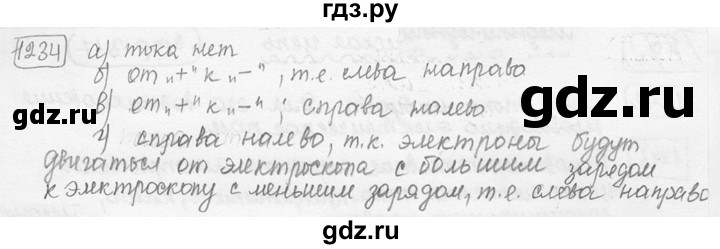 гдз.ру
1234 а) тока нет
б) от „+" к „–", т.е. слева направо
в) от „+" к „–"; справа налево
г) справа налево, т.к. электроны будут
двигаться от электроскопа с большим зарядом
к электроскопу с меньшим зарядом, т.е. слева направо
gdz.ru